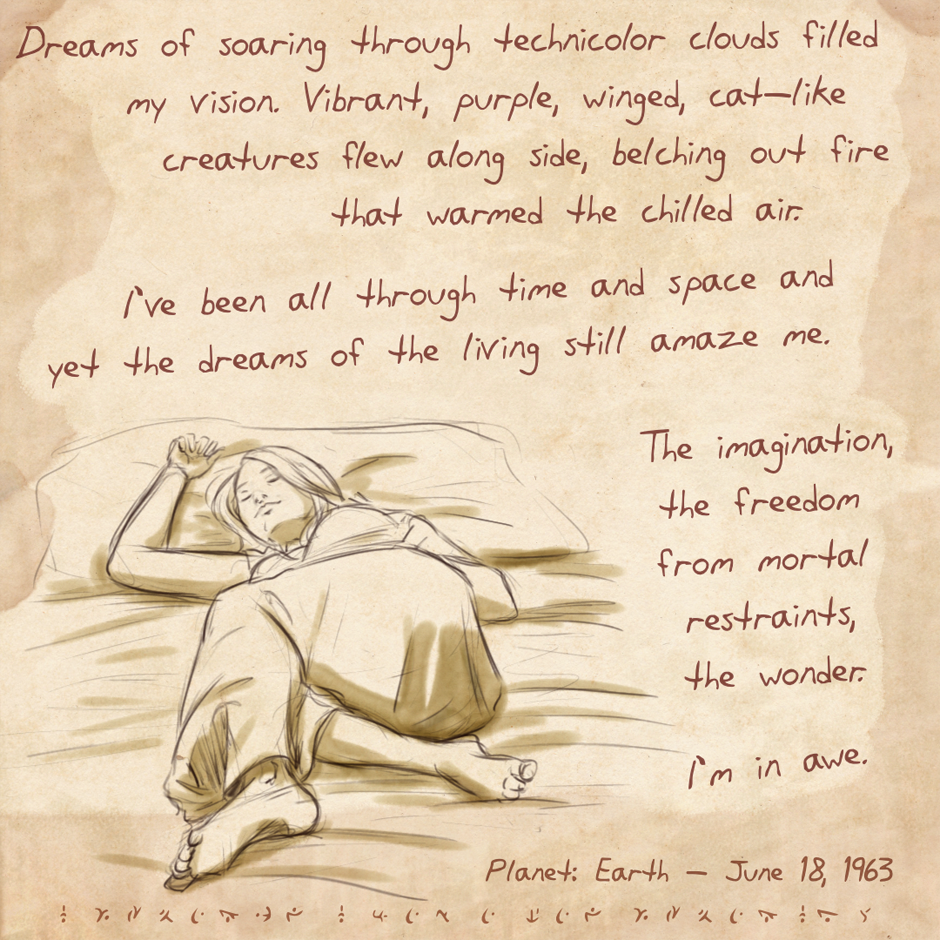 Dreams of soaring through technicolor clouds filled
my vision. Vibrant, purple, winged, cat-like
creatures flew along side, belching out fire
that warmed the chilled air.
I've been all through time and space and
yet the dreams of the living still amaze me.
The imagination,
the freedom
from mortal
restraints,
the wonder.
I'm in awe.
Planet: Earth – June 18, 1963